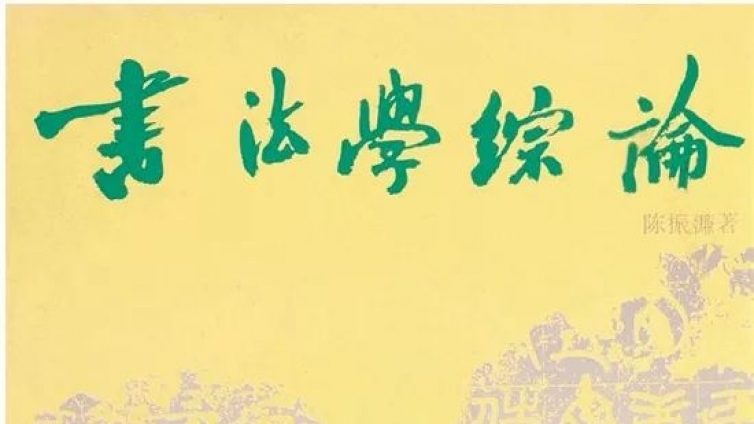 書法學綜論
陈振濂著